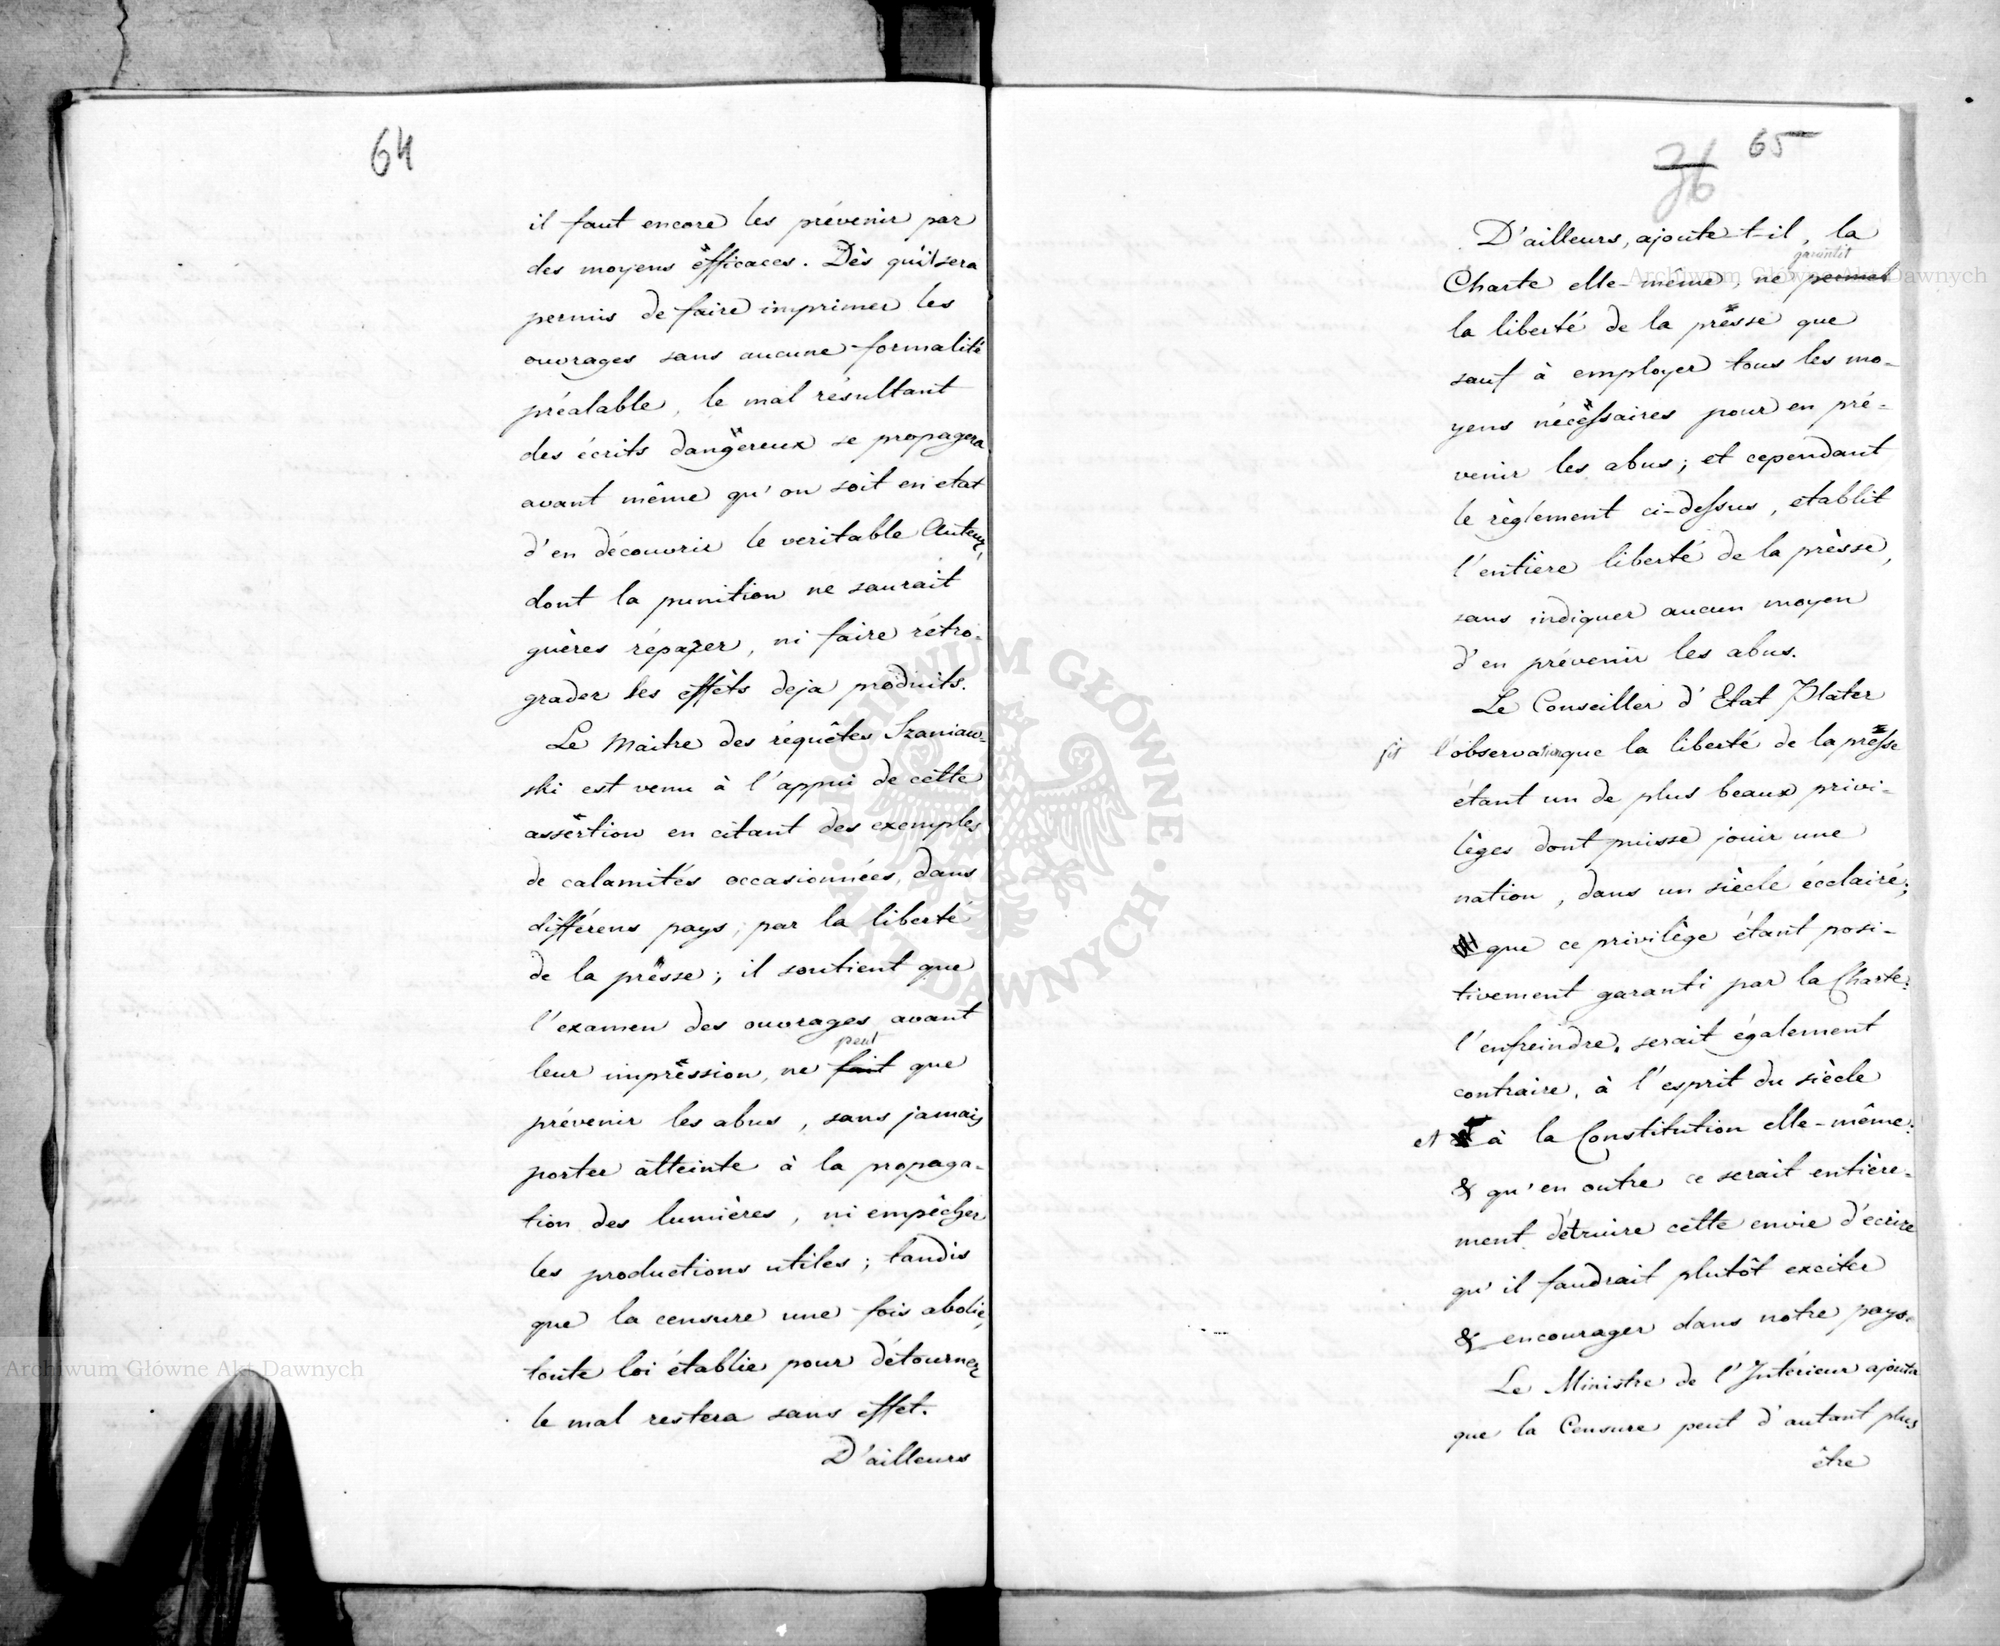 64
il faut encore les prévenir par
des moyens efficaces. Dès qu'il sera
permis de faire imprimer les
ouvrages sans aucune formalité
préalable, le mal résultant
des écrits dangereux se propagera
avant même qu'on soit en etat
d'en découvrir le veritable Auteur,
dont la punition ne saurait
guères réparer, ni faire rétro-
grader les effèts deja produits.
Le Maitre des réquêtes Szaniaw-
ski est venu à l'appui de cètte
assertion en citant des exemples
de calamités occasionnées, dans
différens pays, par la liberté
de la presse; il soutient que
l'examen des ouvrages avant
peut
leur impression, ne fait que
prévenir les abus, sans jamais
porter atteinte à la propaga-
tion des lumières, ni empêcher
les productions utiles; tandis
que la censure une fois abolie,
toute loi établie pour détourner
le mal restera sans effet.
D'ailleurs
65
36
D'ailleurs, ajoute-t-il, la
garantit
Charte elle-même, ne permet
la liberté de la presse que
sauf à employer tous les mo-
yens nécessaires pour en pré-
venir les abus; et cependant
le règlement ci-dessus, etablit
l'entière liberté de la prèsse,
sans indiquer aucun moyen
d'en prévenir les abus.
Le Conseiller d'Etat Plater
fit l'observation que la liberté de la presse
étant un de plus beaux privi-
lèges dont puisse jouir une
nation, dans un siècle écclairé;
que ce privilège étant posi-
tivement garanti par la Charte:
l'enfreindre, serait également
contraire, à l'esprit du siècle
et à la Constitution elle-même:
& qu'en outre ce serait entière-
ment détruire cètte envie d'écrire
qu'il faudrait plutôt exciter
& encourager dans notre pays.
Le Ministre de l'Intérieur ajouta
que la Censure peut d'autant plus
être
Archiwum Główne Akt Dawnych
Archiwum Główne Akt Dawnych
ARCHIWUM GŁÓWNE AKT DAWNYCH